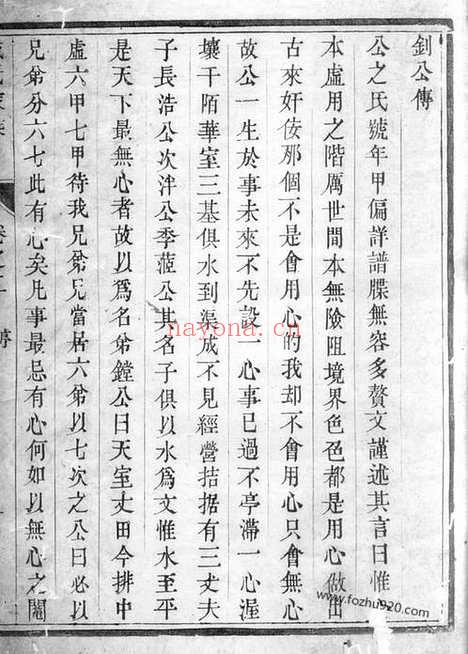 釗公傳
公之氏號年甲偏詳譜牒無容多贅文謹述其言曰惟心
本虛用之階厲世間本無險阻境界色色都是用心做出
古來奸佞那個不是會用心的我却不會用心只會無心
故公一生於事未來不先設一心事已過不亭滯一心渥
壤干陌華室三基俱水到渠成不見經營拮据有三丈夫
子長浩公次泮公季蒞公其名子俱以水爲文惟水至平
是天下最無心者故以爲名弟鏜公日天室丈田今排中
虛六甲七甲待我兄弟兄當居六弟以七次之公曰必以
兄弟分六七此有心矣凡事最忌有心何如以無心之鬮
卷之
傳
nayona.cn
www.fozhu920.com